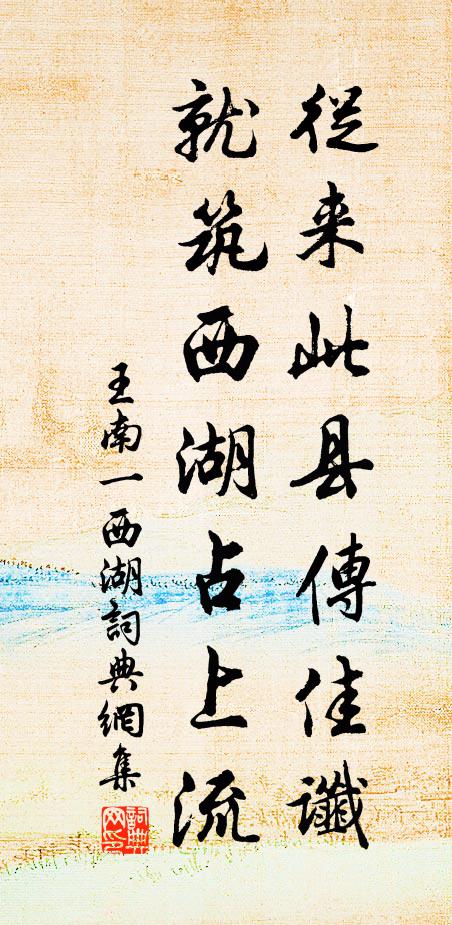 從来此县傳佳讖
就筑西湖占上流
王南一西湖詞典網集
詞典网印